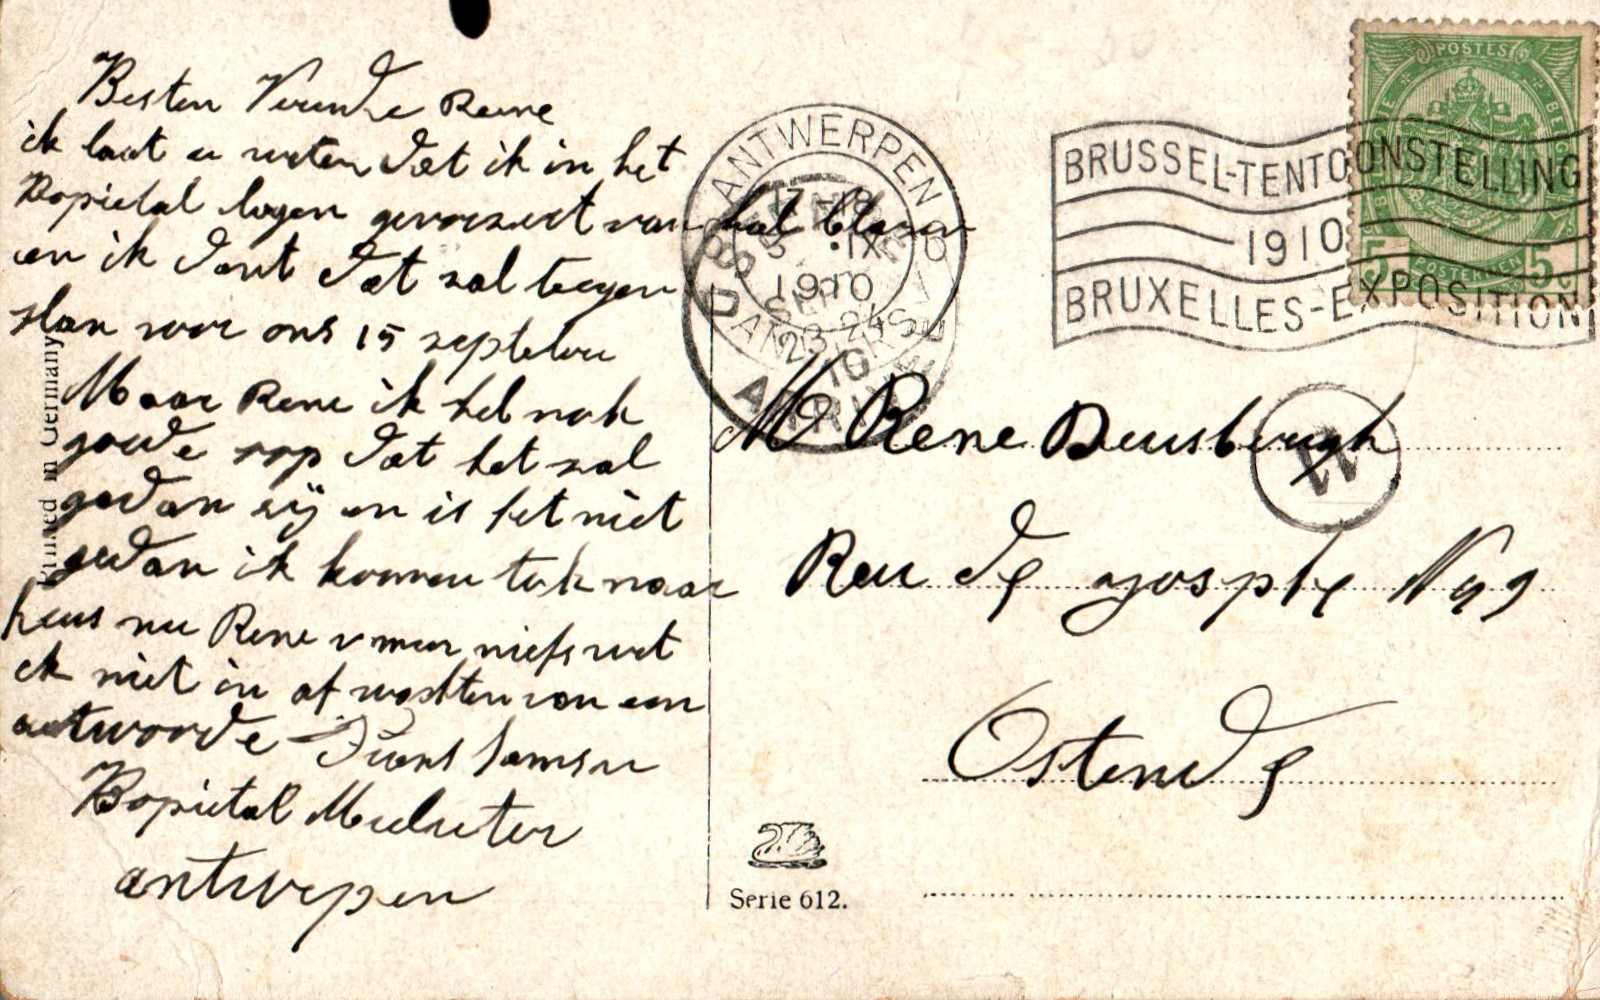 Besten Vriende Rene
ik laat u weten dat ik in het
Hopietal legen gevoezeert van het blauw
en ik dont dat zal teegen
slan voor ons 15 zeptebru
Maar Rene ik heb nok
goede oop dat het zal
gedan zij en is het niet
gedan ik kommen tok naar
heus nu Rene v meer niefs wet
ik niet in af wachten van een
antwoorde Frans Jamsen
Hopietal
antwerpen
Printed in Germany
ANTWERPEN 6
17-18
5 IX
1910
ANVERS
23-24
10
BRUSSEL-TENTOONSTELLING
1910
BRUXELLES-EXPOSITION
POSTES
5 POSTERIJEN 5
M Rene Deusbergh
Reu de josphe N 99
Ostende
Serie 612.